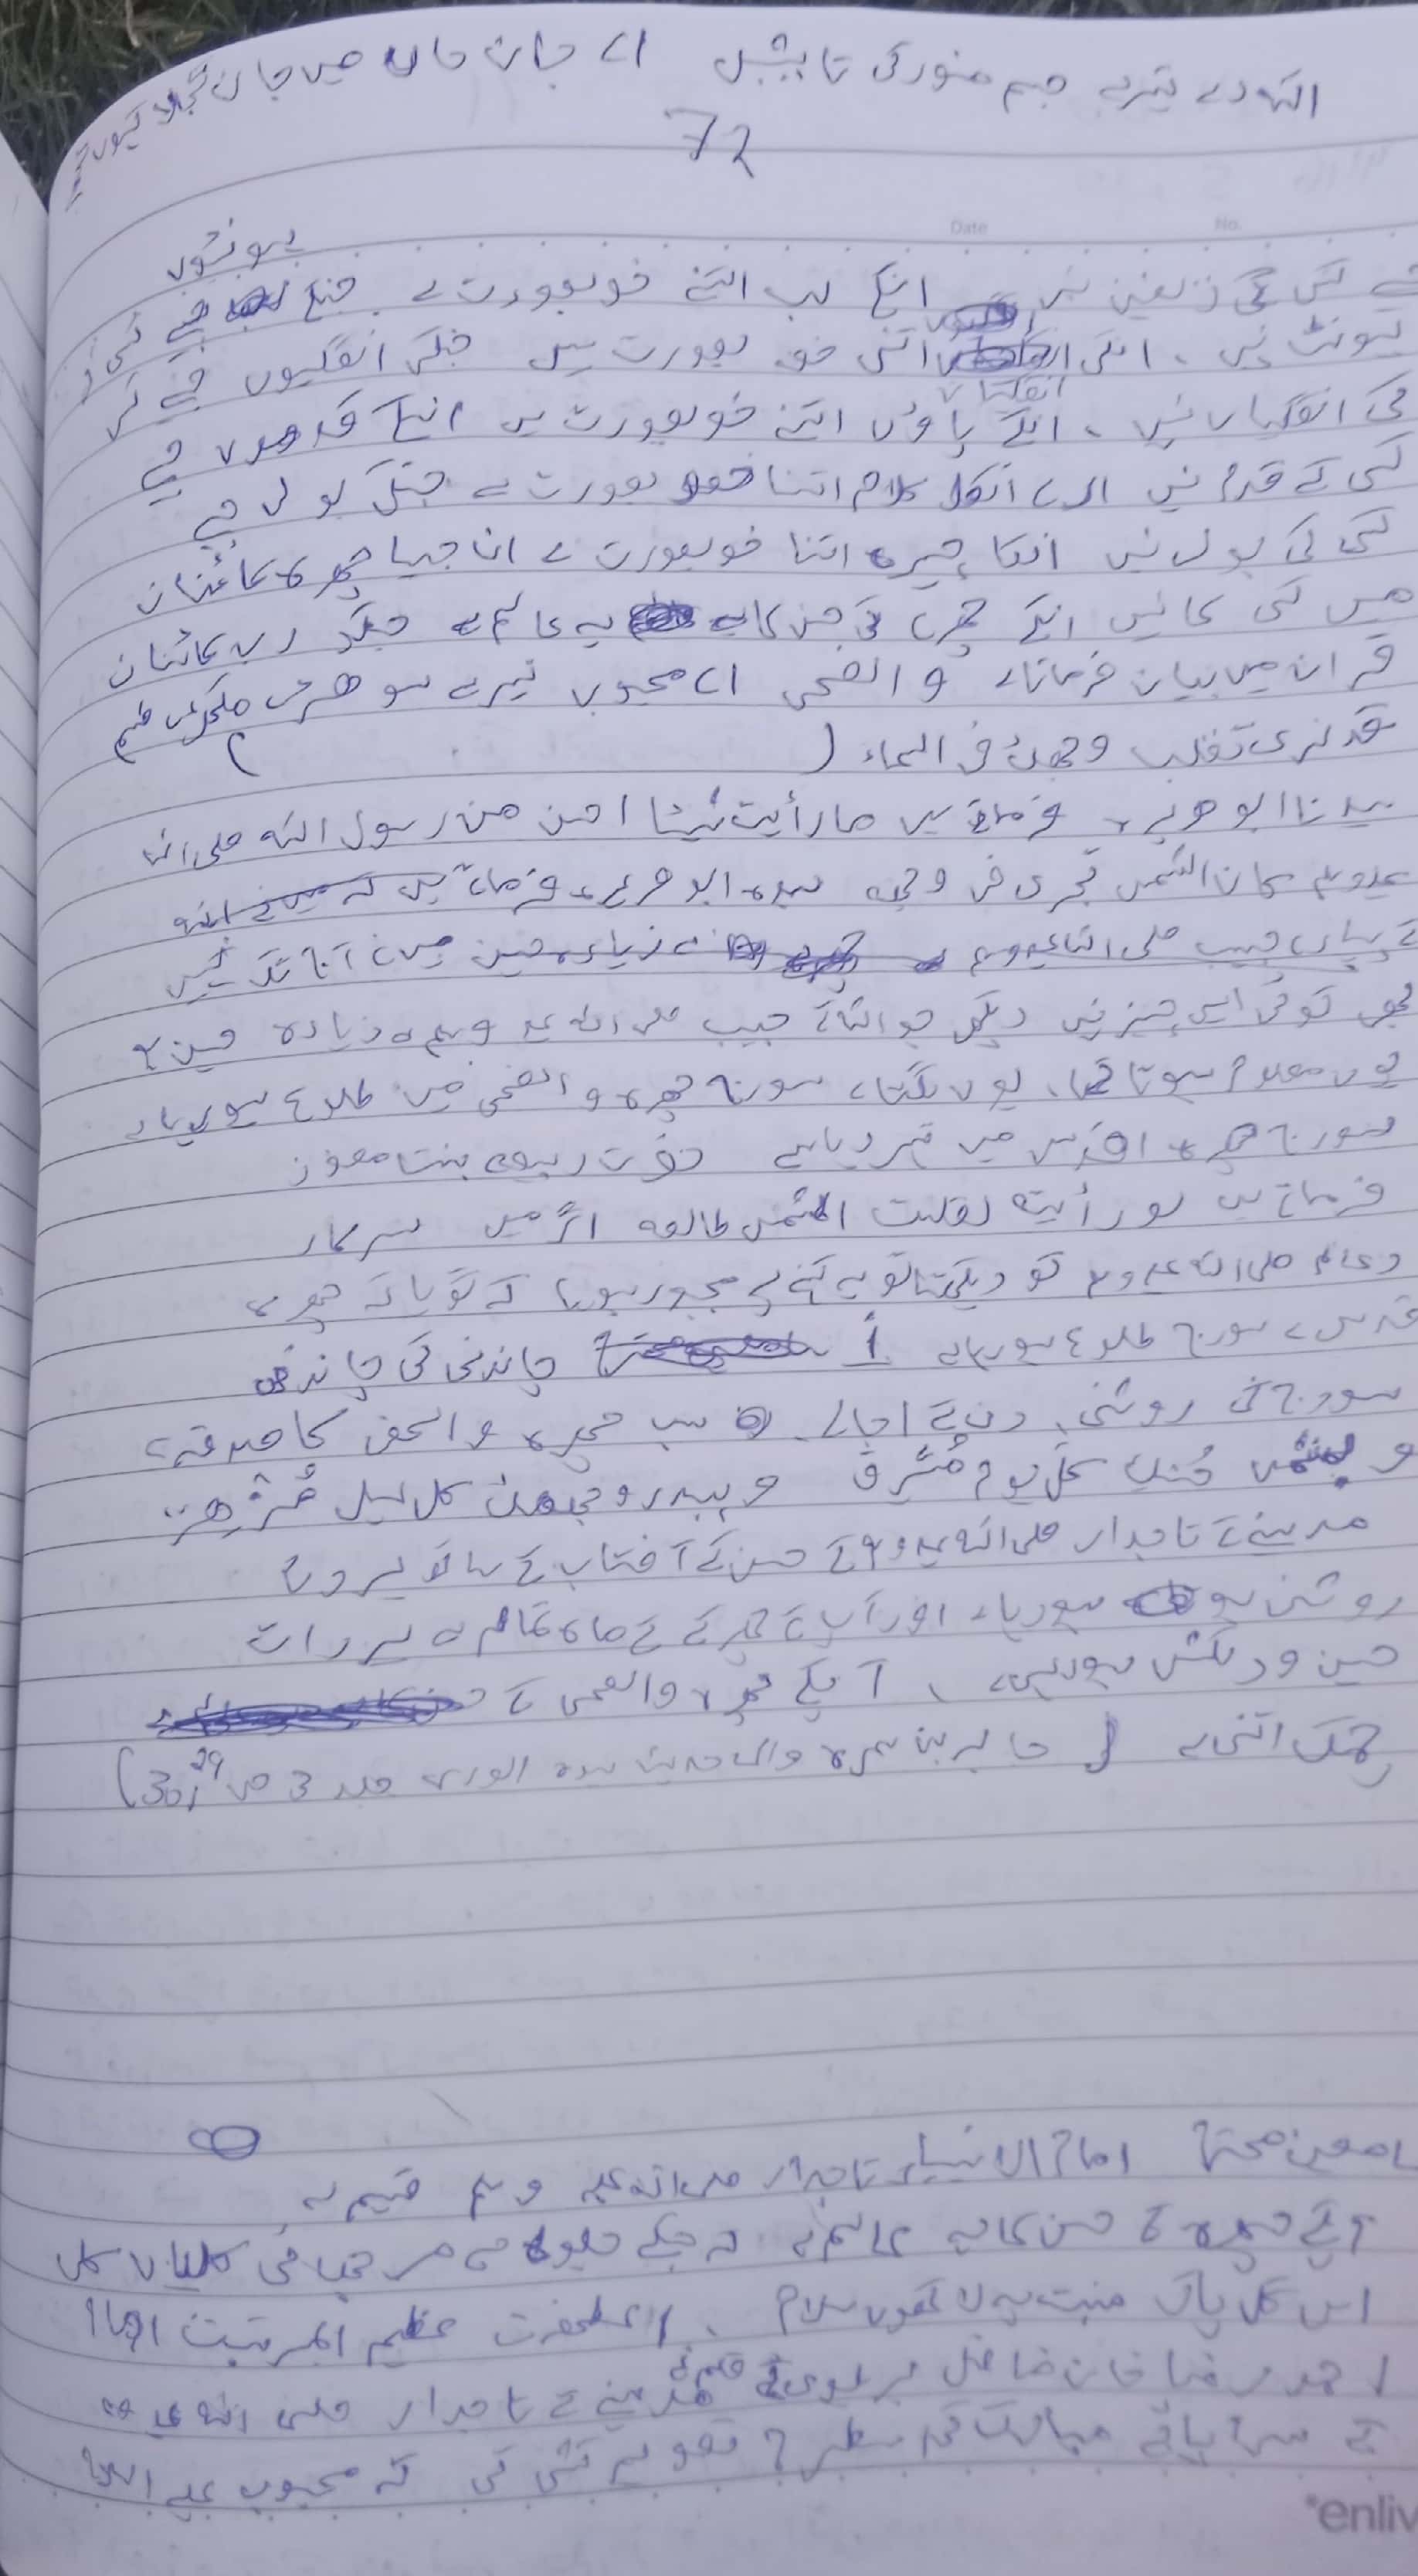 اللہ رے تیرے جسم منور کی تابشیں اے جان جاں میں جان
72
Date No.
ہونٹوں
جسے کسی کی زلفیں نہیں انکے لب اتنے خوبصورت ہے جنکے جیسے کسی
ہونٹ نہیں ، انکی اتنی خوبصورت ہیں جنکی انگلیوں جیسے کسی
انگلیاں
کی انگلیاں نہیں ، انکے پاؤں اتنے خوبصورت ہیں انکے قدموں جیسے
کسی کے قدم نہیں ارے انکا کلام اتنا خوبصورت ہے جنکی بولی جیسے
کسی کی بولی نہیں انکا چہرہ اتنا خوبصورت ہے ان جیسا چہرہ کائنات
میں کسی کا نہیں انکے چہرے کی حسن کا یہ عالم ہے جنکو رب کائنات
قرآن میں بیان فرماتا ہے والضحی اے محبوب تیرے سوہنے
قد نری تقلب وجھک فی السماء ( )
سیدنا ابو ھریرہ فرماتے ہیں ما رأیت شیئا احسن من رسول اللہ صلی اللہ
علیہ وسلم کان الشمس تجری فی وجھہ سیدنا ابو ھریرہ فرماتے ہیں کہ میں نے اللہ
کے پیارے حبیب صلی اللہ علیہ وسلم سے زیادہ حسین میں نے آج تک نہیں
کبھی کوئی ایسی چیز نہیں دیکھی جو اللہ کے حبیب صلی اللہ علیہ وسلم سے زیادہ حسین ہو
یوں معلوم ہوتا تھا، یوں لگتا ہے سورج چہرہ والضحی میں طلوع ہو رہا ہے
سورج چہرہ اقدس میں تیر رہا ہے حضرت ربیعہ بنت معوذ
فرماتی ہیں لو رأیتہ لقلت الشمس طالعہ اگر میں سرکار
دو عالم صلی اللہ علیہ وسلم کو دیکھتا تو یہ کہنے پہ مجبور ہوتا کہ گویا کہ چہرہ
اقدس سے سورج طلوع ہو رہا ہے چاندنی کی چاندنی
سورج کی روشنی، دن کے اجالے سب چہرہ والضحی کا صدقہ ہے
و بشمس حسنک کل یوم مشرق و ببدر وجھک کل لیل مزھر
مدینے کے تاجدار صلی اللہ علیہ وسلم کے حسن کے آفتاب کے ساتھ ہر دن
روشن ہو رہا ہے اور آپ کے چہرے کے ماہ تمام سے ہر رات
حسین و دلکش ہو رہی ہے ، آپکے چہرہ والضحی کے
چمک اتنی ہے ( جابر بن سمرہ والی حدیث سیدہ الوری جلد 3 ص 29، 30)
سامعین محترم امام الانبیاء تاجدار صلی اللہ علیہ وسلم
آپکے چہرہ کے حسن کا یہ عالم ہے کہ جسکے جلوے سے مرجھائی کلیاں کھلیں
اس گل پاک منبت پہ لاکھوں سلام ، اعلحضرت عظیم المرتبت امام
احمد رضا خان فاضل بریلوی کے قلم نے مدینے کے تاجدار صلی اللہ علیہ وسلم
کے سراپائے مبارک کی اسطرح تصویر کشی کی کہ محبوب علیہ السلام
enliv